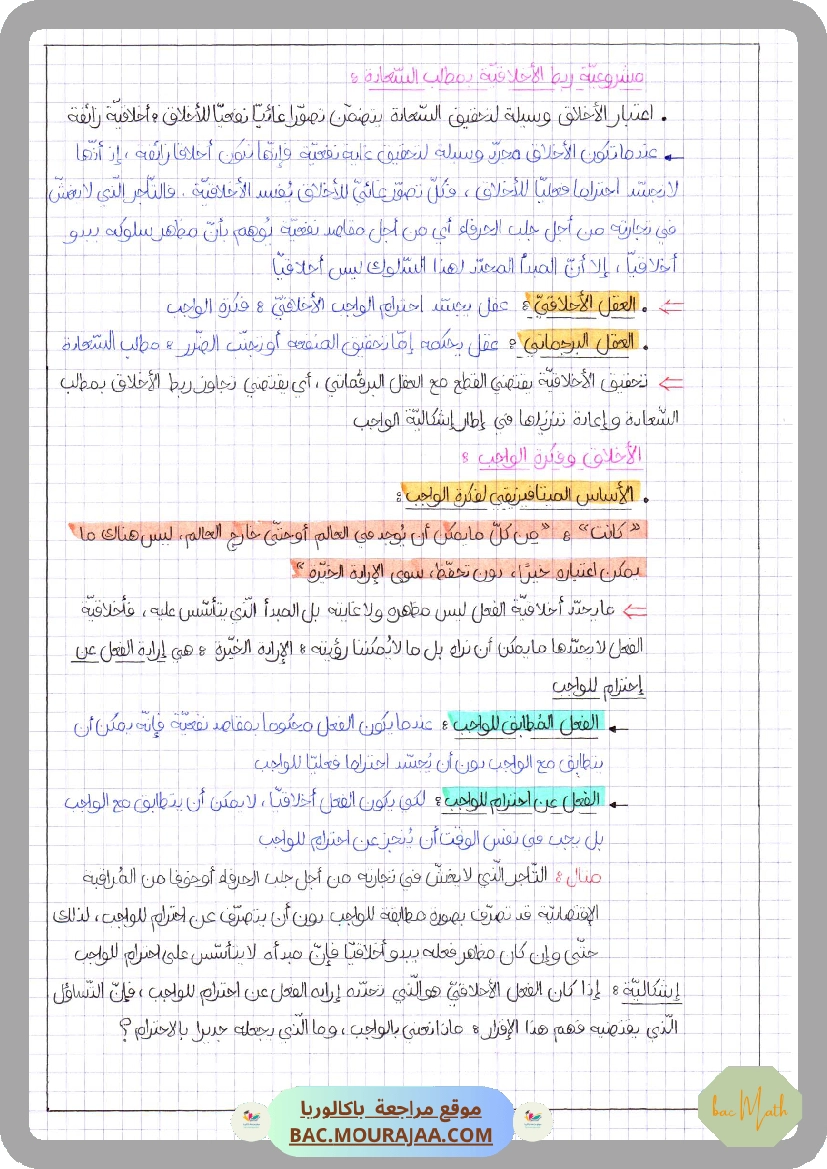 مشروعيّة ربط الأخلاقيّة بمطلب السّعادة :
• اعتبار الأخلاق وسيلة لتحقيق السّعادة يتضمّن تصوّرا غائيّا نفعيّا للأخلاق : أخلاقيّة زائفة
← عندما تكون الأخلاق مجرّد وسيلة لتحقيق غاية نفعيّة فإنّها تكون أخلاقا زائفة ، إذ أنّها
لا تجسّد احتراما فعليّا للأخلاق ، فكلّ تصوّر غائيّ للأخلاق يُفسد الأخلاقيّة . فالتّاجر الّذي لا يغشّ
في تجارته من أجل جلب الحرفاء أي من أجل مقاصد نفعيّة يُوهم بأنّ مظهر سلوكه يبدو
أخلاقيّا ، إلا أنّ المبدأ المحدّد لهذا السّلوك ليس أخلاقيّا
⇐ • العقل الأخلاقيّ : عقل يجسّد احترام الواجب الأخلاقيّ : فكرة الواجب
• العقل البرجماتي : عقل يحكمه إمّا تحقيق المنفعة أو تجنّب الضّرر : مطلب السّعادة
⇐ تحقيق الأخلاقيّة يقتضي القطع مع العقل البرقماتي ، أي يقتضي تجاوز ربط الأخلاق بمطلب
السّعادة وإعادة تنزيلها في إطار إشكاليّة الواجب
الأخلاق وفكرة الواجب :
• الأساس الميتافيزيقي لفكرة الواجب :
"كانت" : "مِن كلّ ما يمكن أن يُوجد في العالم أو حتّى خارج العالم، ليس هناك ما
يمكن اعتباره خيرًا، دون تحفّظ، سوى الإرادة الخيّرة"
⇐ ما يحدّد أخلاقيّة الفعل ليس مظهره ولا غايته بل المبدأ الّذي يتأسّس عليه ، فأخلاقيّة
الفعل لا يحدّدها ما يمكن أن نراه بل ما لا يُمكننا رؤيته : الإرادة الخيّرة : هي إرادة الفعل عن
إحترام للواجب
← الفعل المُطابق للواجب : عندما يكون الفعل محكوما بمقاصد نفعيّة فإنّه يمكن أن
يتطابق مع الواجب دون أن يُجسّد احتراما فعليّا للواجب
← الفعل عن احترام للواجب : لكي يكون الفعل أخلاقيّا ، لا يمكن أن يتطابق مع الواجب
بل يجب في نفس الوقت أن يُنجز عن احترام للواجب
مثال : التّاجر الّذي لا يغشّ في تجارته من أجل جلب الحرفاء أو خوفا من المُراقبة
الإقتصاديّة قد تصرّف بصورة مطابقة للواجب دون أن يتصرّف عن احترام للواجب ، لذلك
حتّى وإن كان مظهر فعله يبدو أخلاقيّا فإنّ مبدأه لا يتأسّس على احترام للواجب
إشكاليّة : إذا كان الفعل الأخلاقيّ هو الّذي تحدّده إرادة الفعل عن احترام للواجب ، فإنّ التّساؤل
الّذي يقتضيه فهم هذا الإقرار : ماذا نعني بالواجب ، وما الّذي يجعله جديرا بالاحترام ؟
bac Math
موقع مراجعة باكالوريا
BAC.MOURAJAA.COM